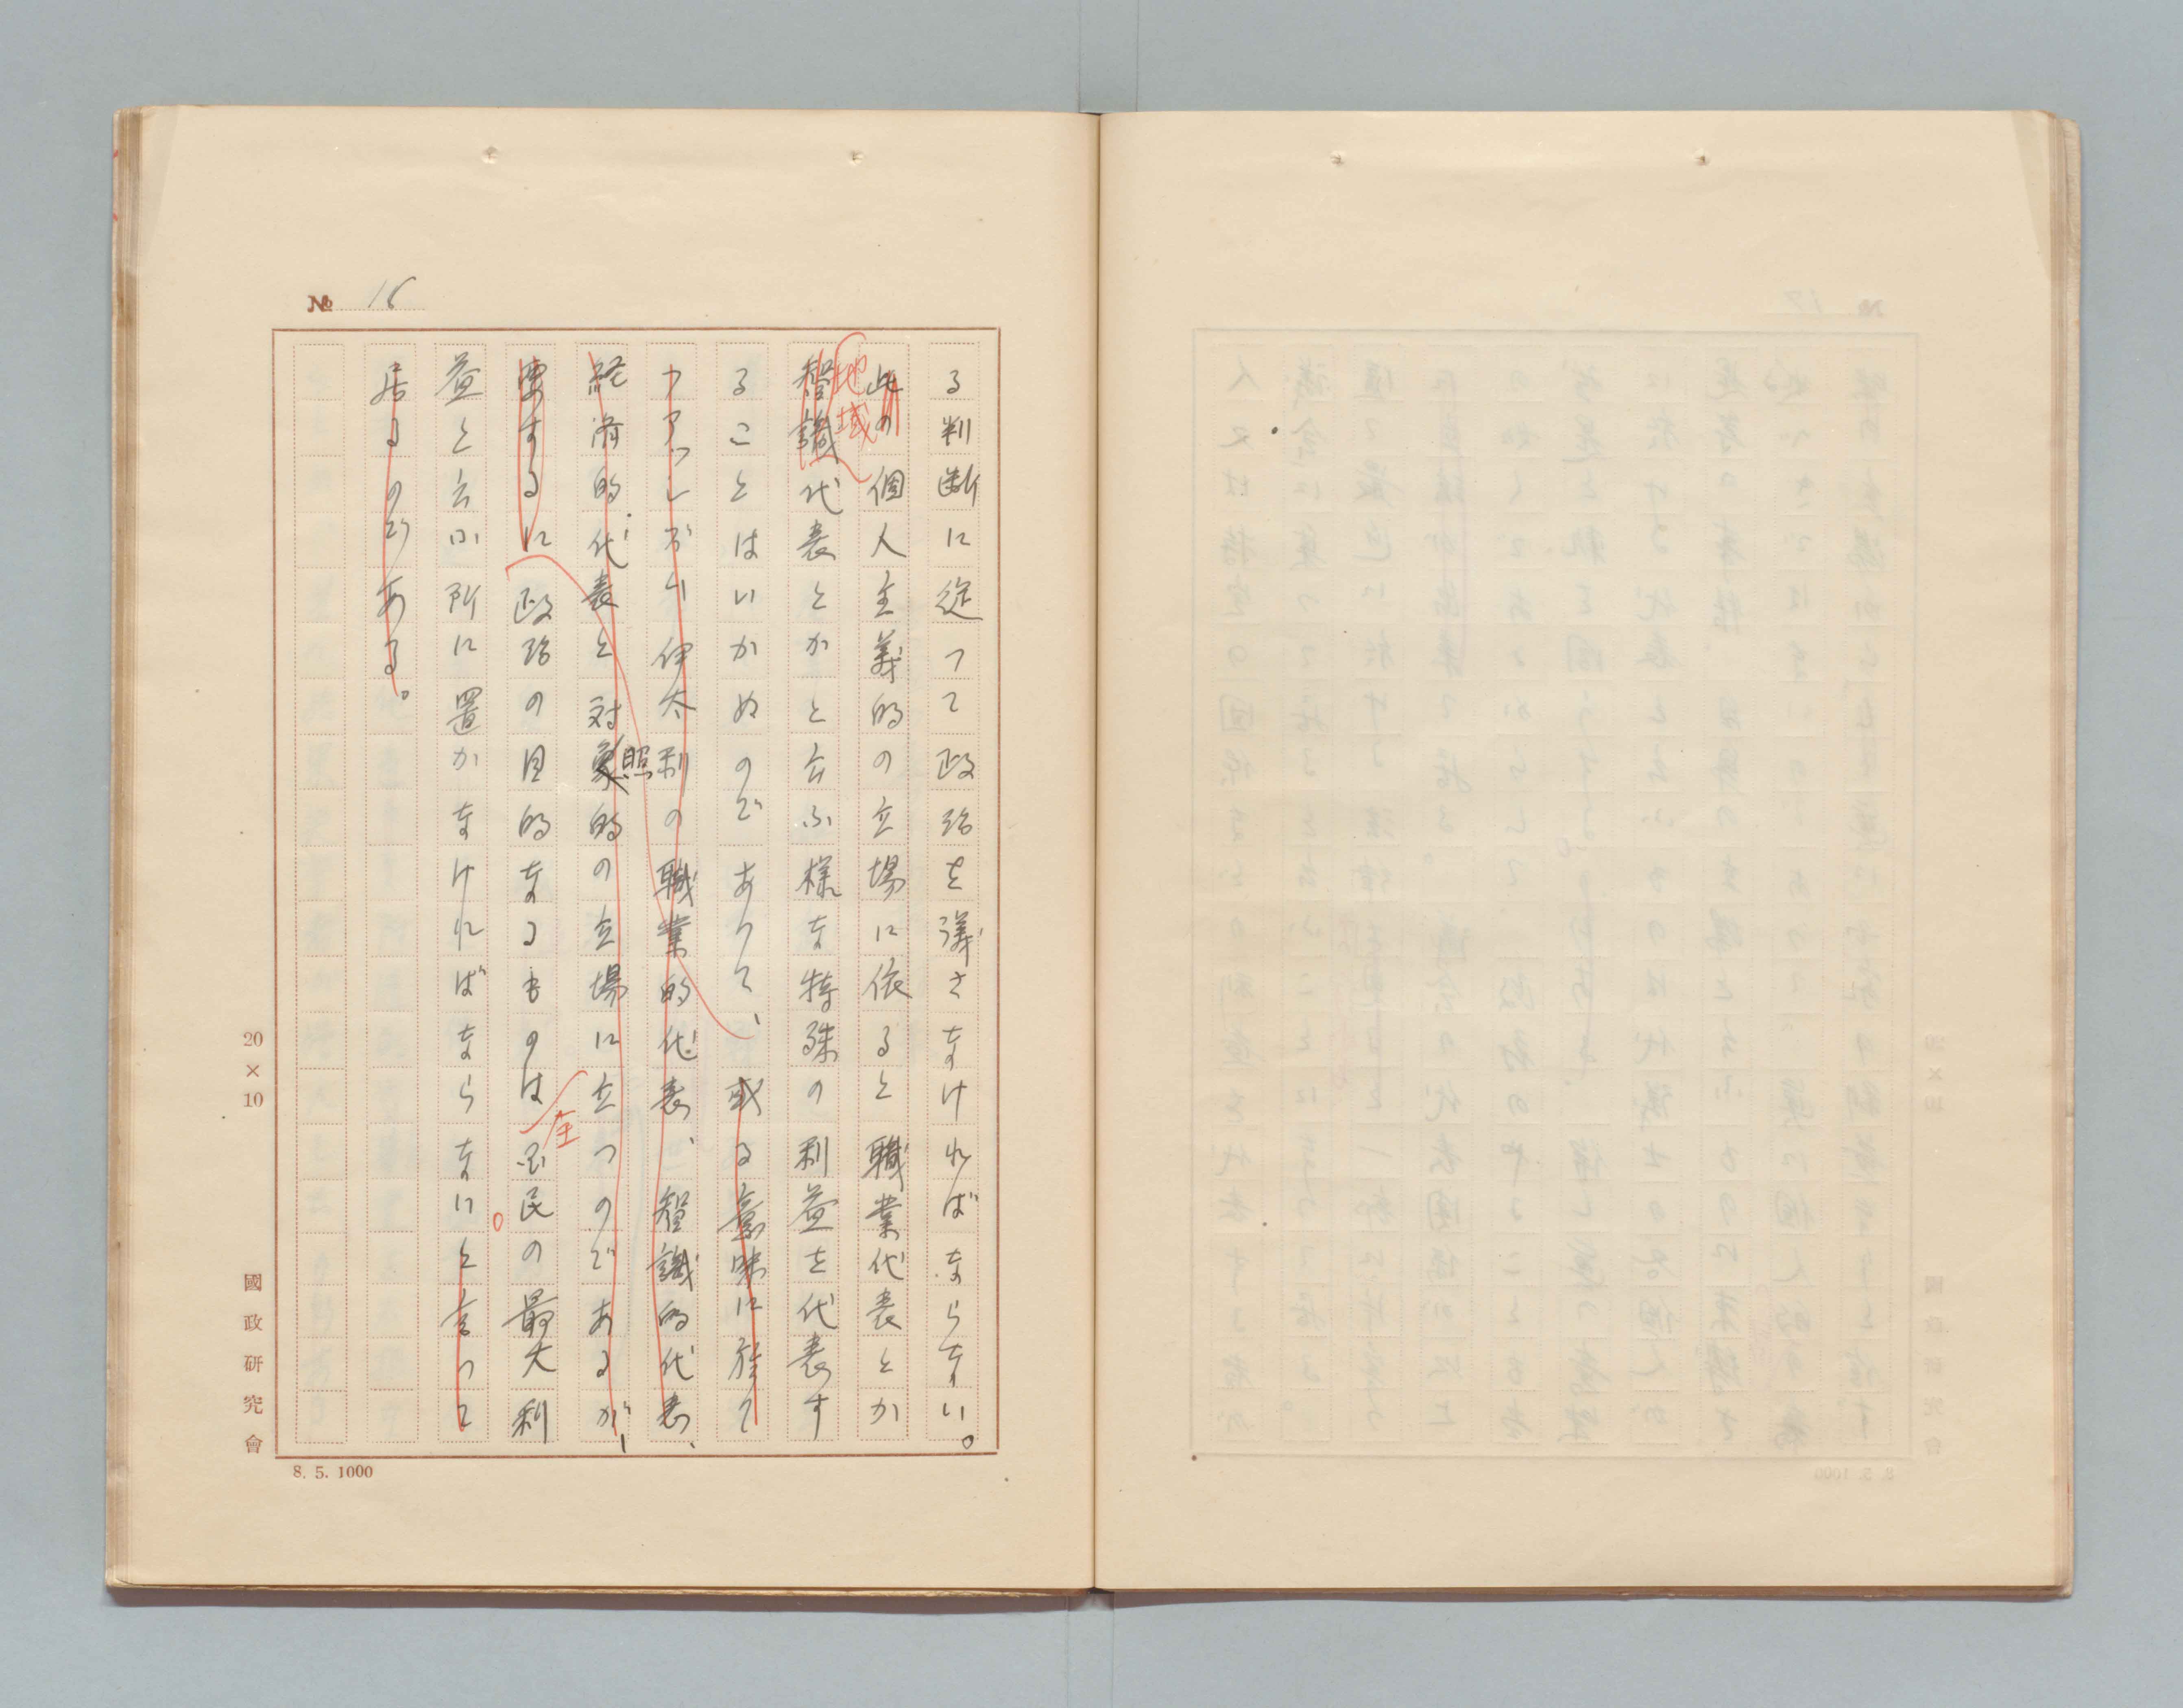 № 16
る判断に従つて政治を議さなければならない。
此の個人主義的の立場に依ると職業代表とか
地域
智識代表とかと云ふ様な特殊の利益を代表す
ることはいかぬのであつて、或る意味に於て
伊太利の職業的代表、智識的代表、
照
経済的代表と対象的の立場に立つのであるが、
要するに政治の目的なるものは国民の最大利
全
益と云ふ所に置かなければならないと言つて
居るのである。
20×10
國政研究會
8. 5. 1000